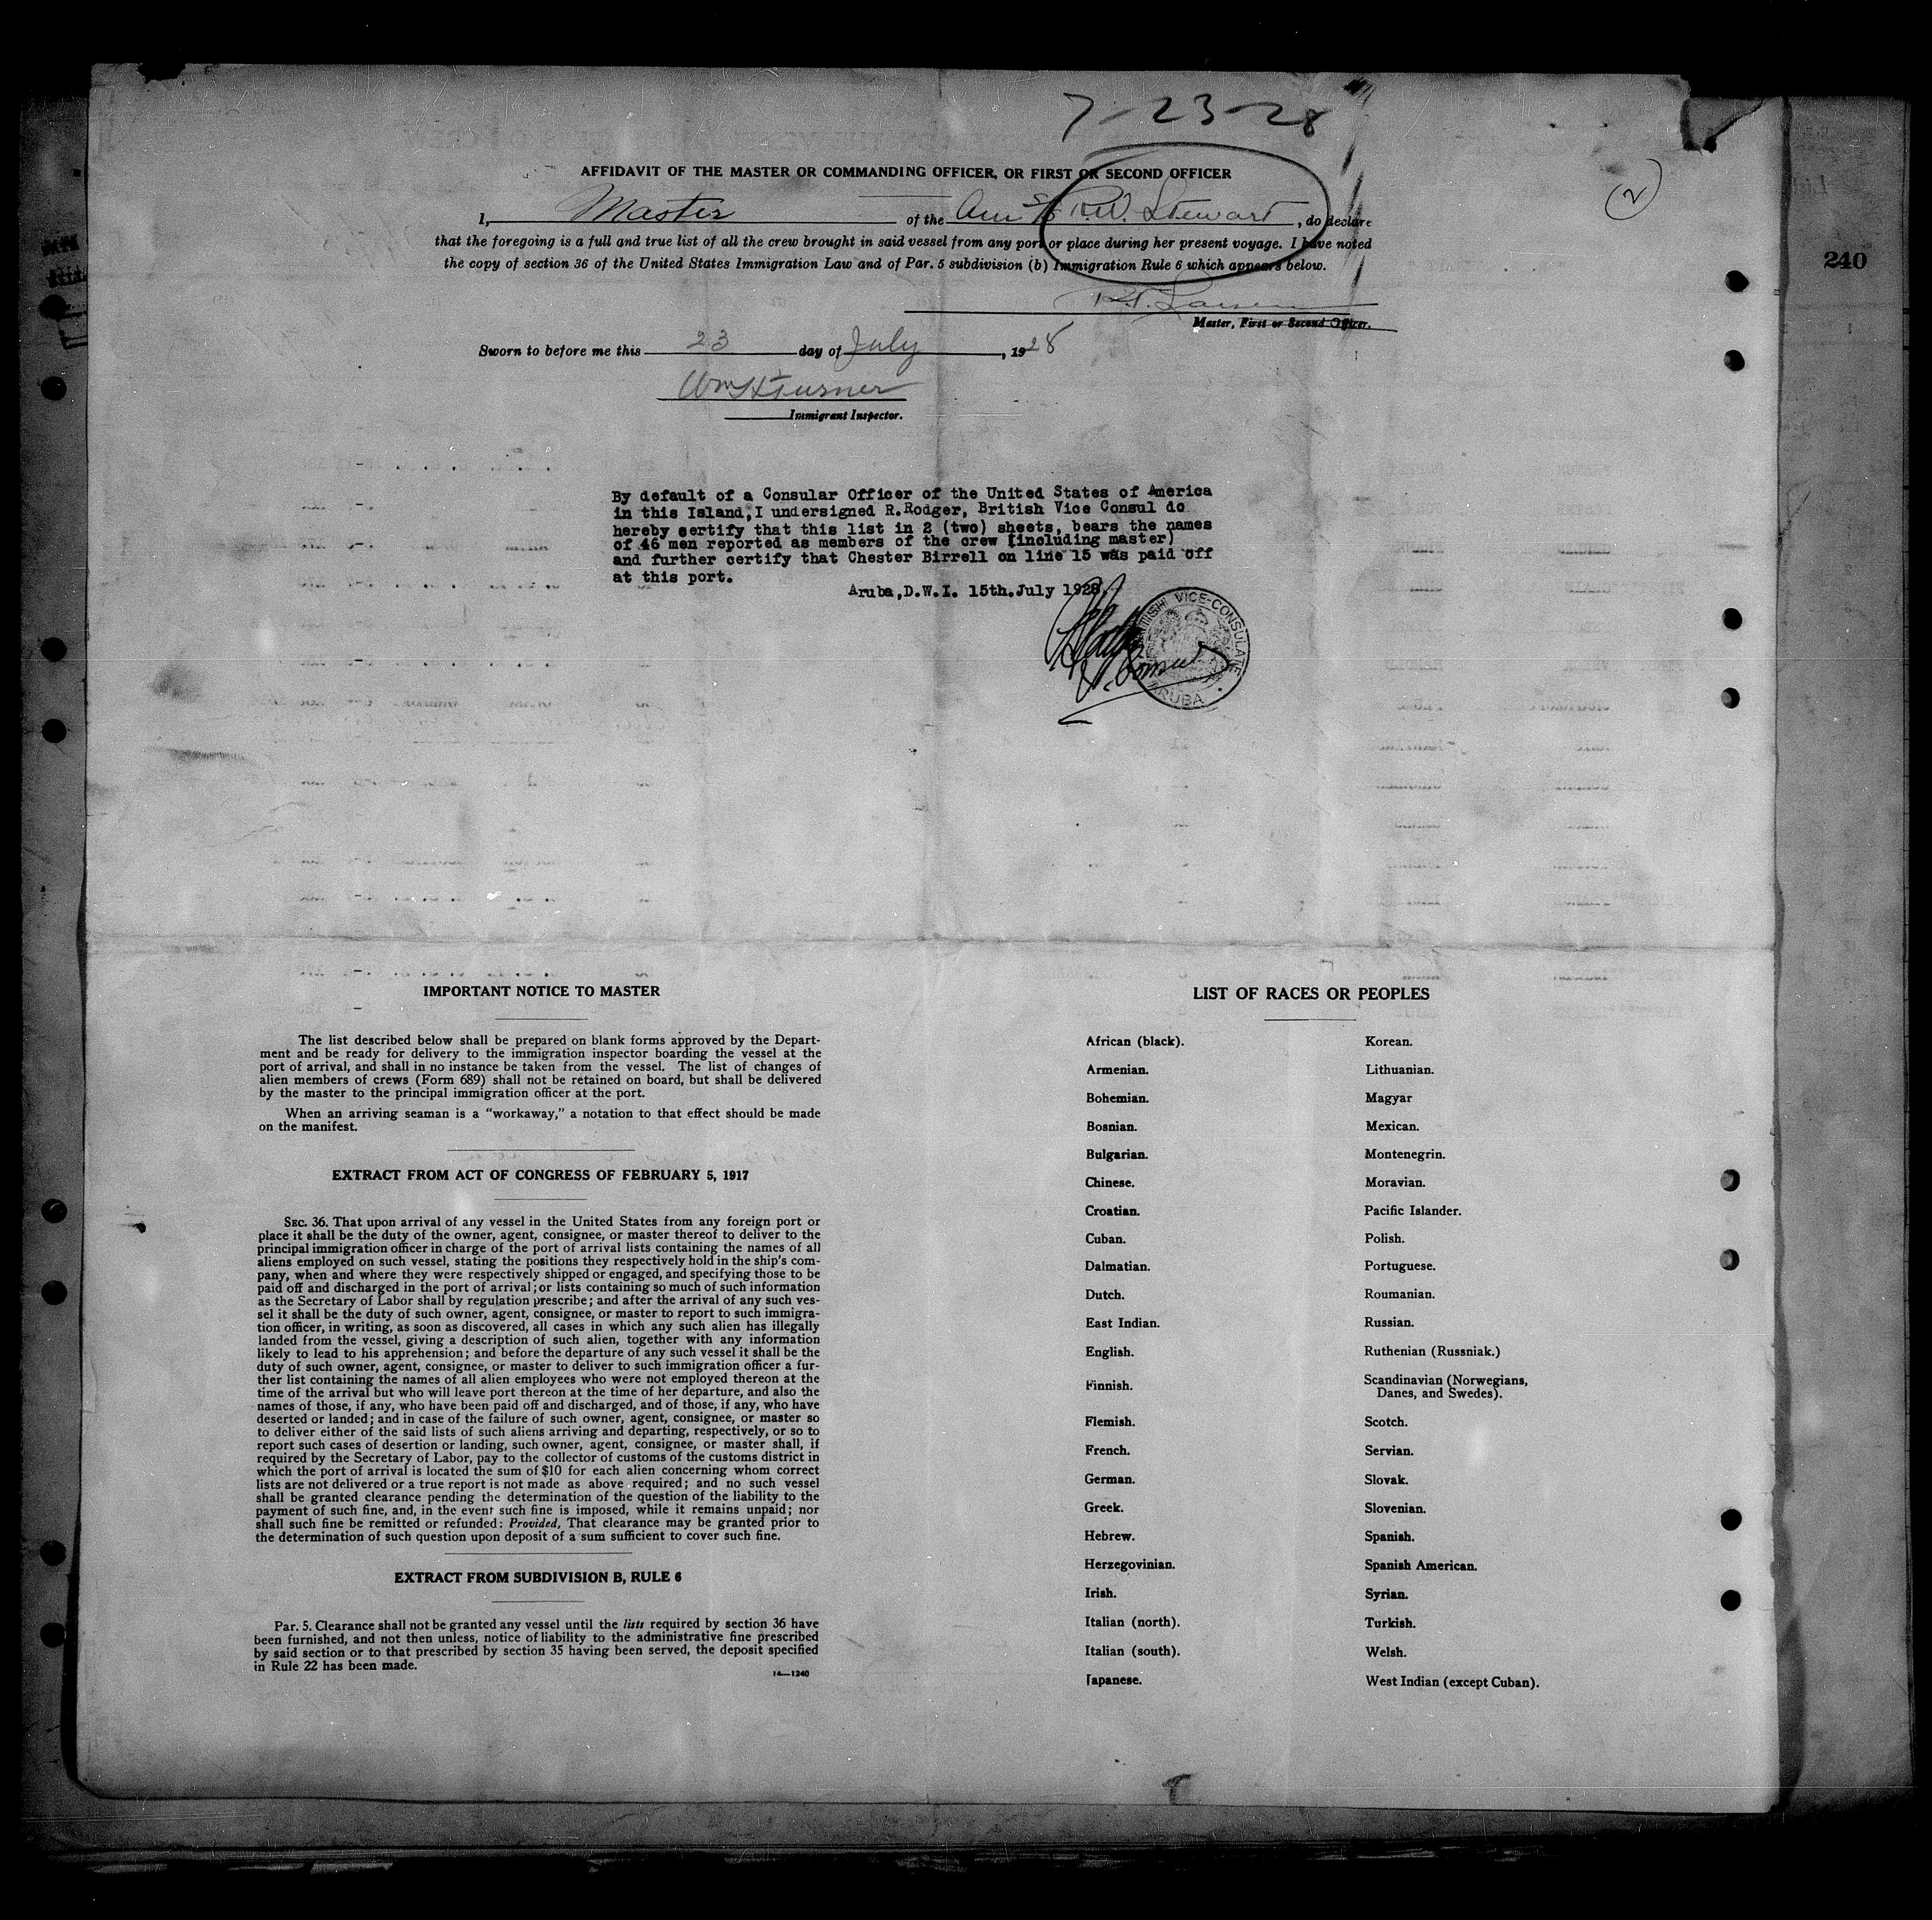 7-23-28
(2)
AFFIDAVIT OF THE MASTER OR COMMANDING OFFICER, OR FIRST OR SECOND OFFICER
I, Master of the Am S/S R.W. Stewart, do declare
that the foregoing is a full and true list of all the crew brought in said vessel from any port or place during her present voyage. I have noted
the copy of section 36 of the United States Immigration Law and of Par. 5 subdivision (b) Immigration Rule 6 which appears below.
240
Master, First or Second Officer.
Sworn to before me this 23 day of July, 1928
Wm H Turner
Immigrant Inspector.
By default of a Consular Officer of the United States of America
in this Island, I undersigned R.Rodger, British Vice Consul do
hereby certify that this list in 2 (two) sheets, bears the names
of 46 men reported as members of the crew (including master)
and further certify that Chester Birrell on line 15 was paid off
at this port.
Aruba,D.W.I. 15th.July 1928.
BRITISH VICE-CONSULATE
ARUBA
V. Consul
IMPORTANT NOTICE TO MASTER
The list described below shall be prepared on blank forms approved by the Depart-
ment and be ready for delivery to the immigration inspector boarding the vessel at the
port of arrival, and shall in no instance be taken from the vessel. The list of changes of
alien members of crews (Form 689) shall not be retained on board, but shall be delivered
by the master to the principal immigration officer at the port.
When an arriving seaman is a "workaway," a notation to that effect should be made
on the manifest.
EXTRACT FROM ACT OF CONGRESS OF FEBRUARY 5, 1917
SEC. 36. That upon arrival of any vessel in the United States from any foreign port or
place it shall be the duty of the owner, agent, consignee, or master thereof to deliver to the
principal immigration officer in charge of the port of arrival lists containing the names of all
aliens employed on such vessel, stating the positions they respectively hold in the ship's com-
pany, when and where they were respectively shipped or engaged, and specifying those to be
paid off and discharged in the port of arrival; or lists containing so much of such information
as the Secretary of Labor shall by regulation prescribe; and after the arrival of any such ves-
sel it shall be the duty of such owner, agent, consignee, or master to report to such immigra-
tion officer, in writing, as soon as discovered, all cases in which any such alien has illegally
landed from the vessel, giving a description of such alien, together with any information
likely to lead to his apprehension; and before the departure of any such vessel it shall be the
duty of such owner, agent, consignee, or master to deliver to such immigration officer a fur-
ther list containing the names of all alien employees who were not employed thereon at the
time of the arrival but who will leave port thereon at the time of her departure, and also the
names of those, if any, who have been paid off and discharged, and of those, if any, who have
deserted or landed; and in case of the failure of such owner, agent, consignee, or master so
to deliver either of the said lists of such aliens arriving and departing, respectively, or so to
report such cases of desertion or landing, such owner, agent, consignee, or master shall, if
required by the Secretary of Labor, pay to the collector of customs of the customs district in
which the port of arrival is located the sum of $10 for each alien concerning whom correct
lists are not delivered or a true report is not made as above required; and no such vessel
shall be granted clearance pending the determination of the question of the liability to the
payment of such fine, and, in the event such fine is imposed, while it remains unpaid; nor
shall such fine be remitted or refunded: Provided, That clearance may be granted prior to
the determination of such question upon deposit of a sum sufficient to cover such fine.
EXTRACT FROM SUBDIVISION B, RULE 6
Par. 5. Clearance shall not be granted any vessel until the lists required by section 36 have
been furnished, and not then unless, notice of liability to the administrative fine prescribed
by said section or to that prescribed by section 35 having been served, the deposit specified
in Rule 22 has been made.
14—1240
LIST OF RACES OR PEOPLES
African (black).
Armenian.
Bohemian.
Bosnian.
Bulgarian.
Chinese.
Croatian.
Cuban.
Dalmatian.
Dutch.
East Indian.
English.
Finnish.
Flemish.
French.
German.
Greek.
Hebrew.
Herzegovinian.
Irish.
Italian (north).
Italian (south).
Japanese.
Korean.
Lithuanian.
Magyar
Mexican.
Montenegrin.
Moravian.
Pacific Islander.
Polish.
Portuguese.
Roumanian.
Russian.
Ruthenian (Russniak.)
Scandinavian (Norwegians,
Danes, and Swedes).
Scotch.
Servian.
Slovak.
Slovenian.
Spanish.
Spanish American.
Syrian.
Turkish.
Welsh.
West Indian (except Cuban).